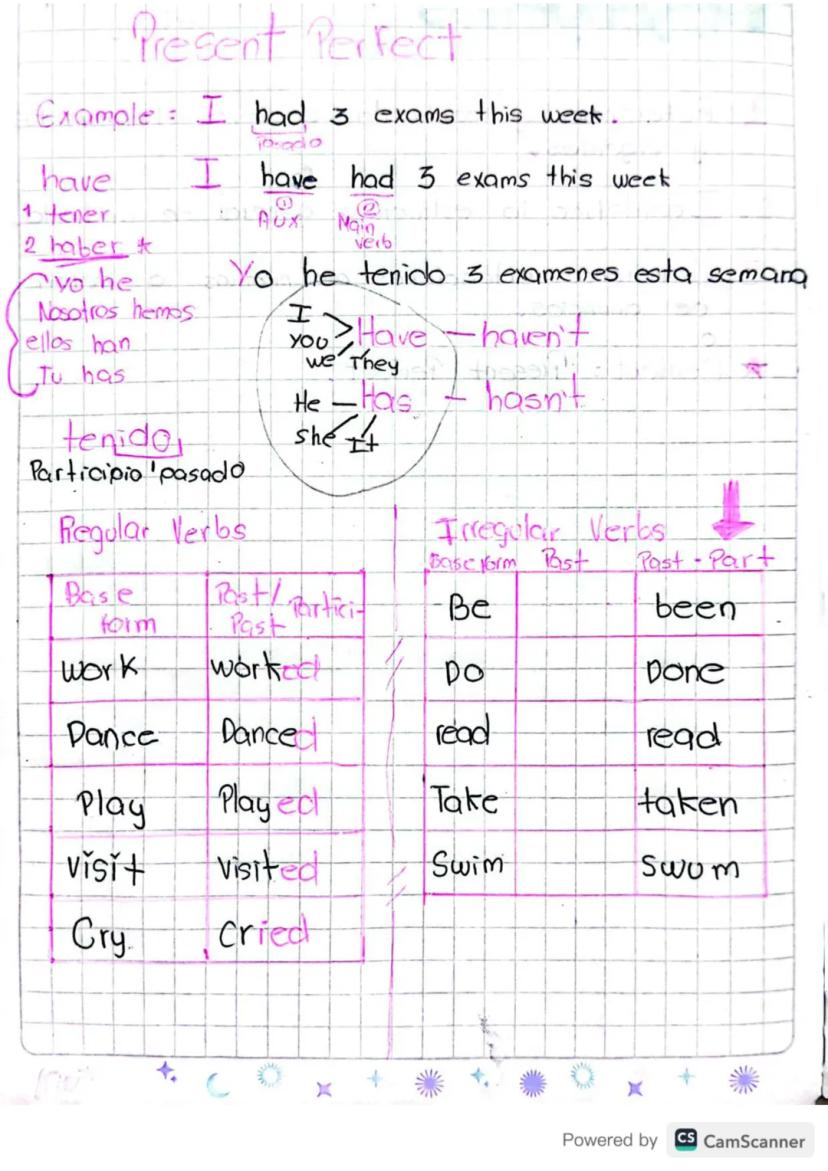 Present Perfect
Example: I had 3 exams this week.
pasado
have I have had 3 exams this week
1 tener ① ②
2 haber * Aux Main verb
yo he Yo he tenido 3 examenes esta semana
Nosotros hemos
ellos han
Tu has
I
you Have — haven't
we They
He — Has — hasn't
she It
tenido
Participio pasado
Regular Verbs
Base form Past/Past Partici-
work worked
Dance Danced
Play Played
visit visited
Cry cried
Irregular Verbs
Base form Past Past-Part
Be been
DO Done
read read
Take taken
Swim swum
Powered by CS CamScanner